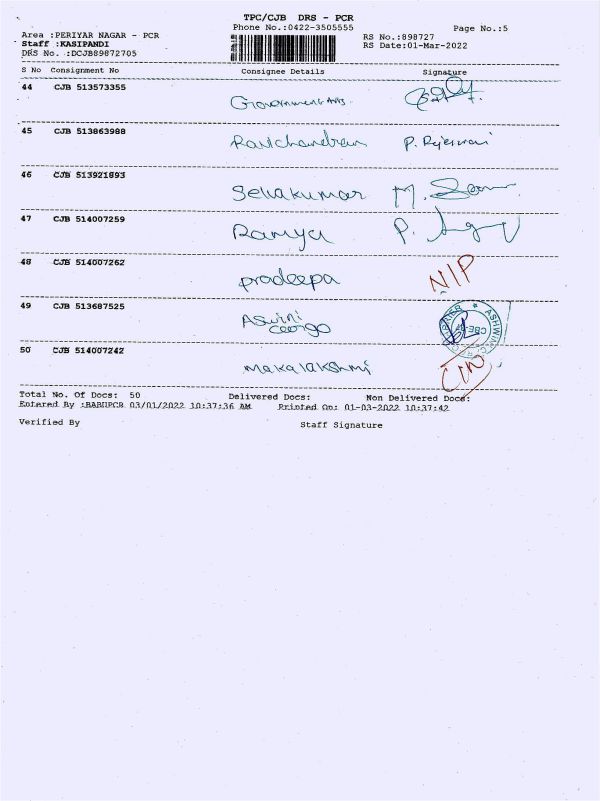 TPC/CJB DRS - PCR
Phone No.:0422-3505555
Page No.:5
Area :PERIYAR NAGAR - PCR
RS No.:898727
Staff :KASIPANDI
RS Date:01-Mar-2022
DRS No. :DCJB89872705
S No Consignment No Consignee Details Signature
44 CJB 513573355 Government Arts
45 CJB 513863988 Ravichandran P. Rajeswari
46 CJB 513921893 Selvakumar M.
47 CJB 514007259 Ramya P.
48 CJB 514007262 pradeepa NIP
49 CJB 513687525 Aswini
50 CJB 514007242 makalakshmi
Total No. Of Docs: 50 Delivered Docs: Non Delivered Docs:
Entered By :BABUPCR 03/01/2022 10:37:36 AM Printed On: 01-03-2022 10:37:42
Verified By Staff Signature